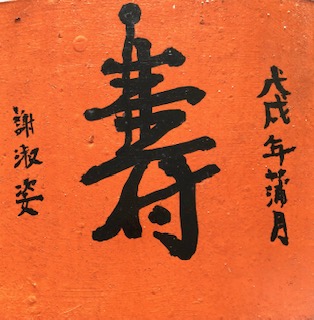 戊戌年蒲月
壽
謝淑姿